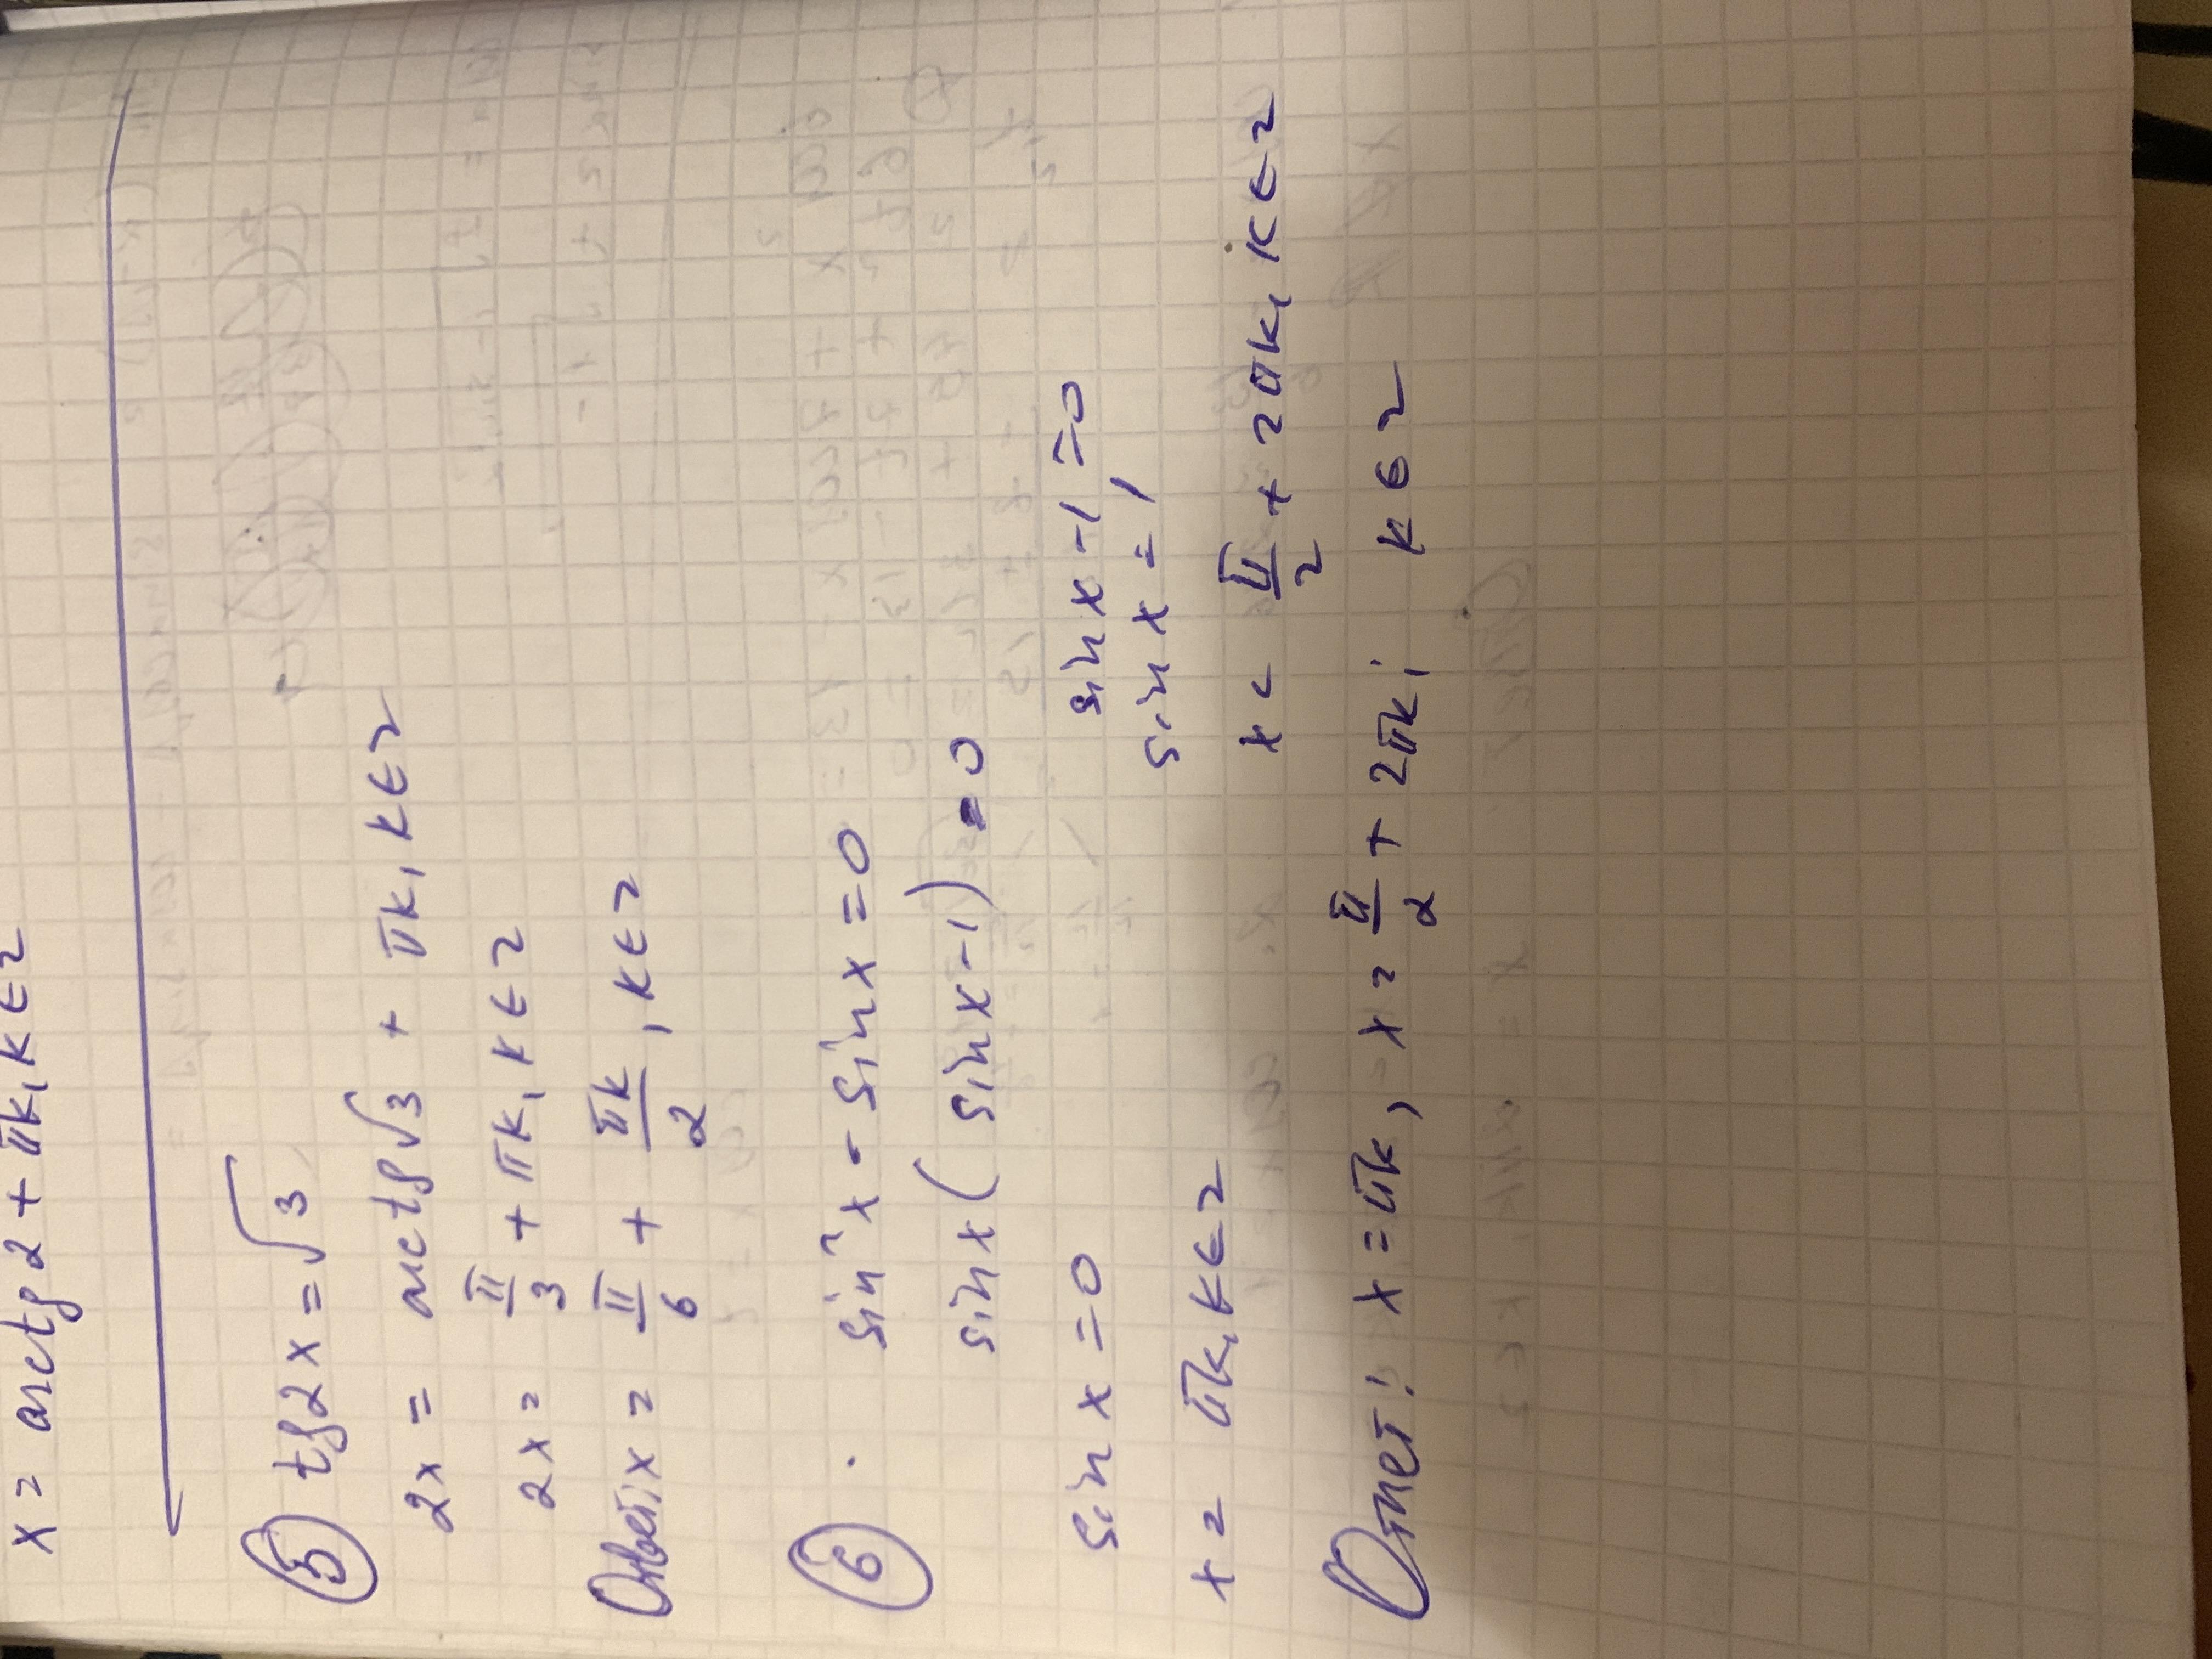 x = arctg 2 + πk, k ∈ Z
5 tg 2x = √3
2x = arctg √3 + πk, k ∈ Z
2x = π/3 + πk, k ∈ Z
Ответ: x = π/6 + πk/2, k ∈ Z
6. sin²x - sin x = 0
sin x (sin x - 1) = 0
sin x = 0 sin x - 1 = 0
sin x = 1
x = πk, k ∈ Z x = π/2 + 2πk, k ∈ Z
Ответ: x = πk, x = π/2 + 2πk, k ∈ Z